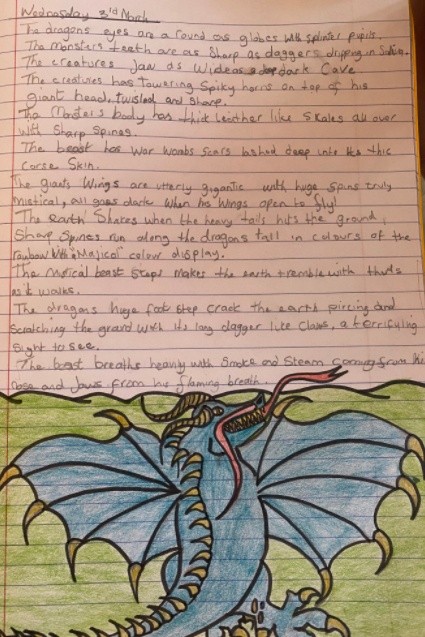 Wednosday 3rd March
The dragons eyes are a round as globes with splinter pupils.
The monsters teeth are as sharp as daggers dripping in
The creatures Jaw as wide as a dark Cave
The creatures has towering Spiky horns on top of his
giant head, twisted and Sharp.
The Monsters body has thick leather like Skales all over
with Sharp Spines.
The beast has War Scars lashed deep into this
Corse Skin.
The giants Wings are utterly gigantic with huge Spins truly
mistical, all goes dark when his wings open to fly!
The earth Shakes when the heavy tails hits the ground,
Sharp Spines run along the dragons tail in colours of the
colour display.
The beast Steps makes the earth tremble with thuds
as it walks.
The dragons huge foot Step Crack the earth and
Scratching the ground with its long dagger like claws, a terrifying
Sight to see.
The beast breaths heavily with Smoke and Steam coming from
nose and Jaws from his flaming breath.